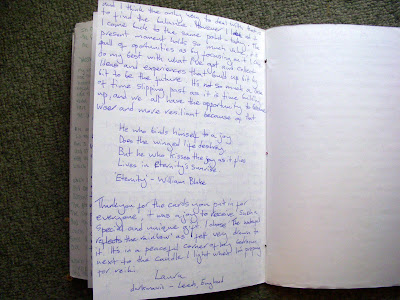 and I think the only way to deal with
to find the balance. However I look at it
I come back to the same point - that the
present moment holds so much value. The
of opportunities as by focusing on it I can
do my best with what I've got and collect
ideas and experiences that build up bit by
bit to be the future. It's not so much a case
of time slipping past as it is time building
up, and we all have the opportunity to become
wiser and more resilient because of that
He who binds himself to a joy
Does the winged life destroy
But he who kisses the joy as it flies
Lives in Eternity's sunrise
'Eternity' - William Blake
Thankyou for the cards you put in for
everyone, it was a joy to receive such a
special and unique gift. I chose The
reflects the rainbow as I felt very drawn to
it. It's in a peaceful corner of my bedroom
next to the candle I light when I'm praying
for
Laura
- Leeds, England